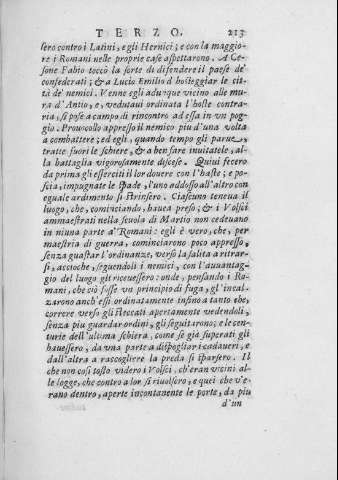 TERZO. 213
sero contro i Latini, e gli Hernici; e con la maggio-
re i Romani nelle proprie case aspettarono. A Ce-
sone Fabio toccò la sorte di difendere il paese de'
confederati; & a Lucio Emilio d'hosteggiar le cit-
tà de' nemici. Venne egli adunque vicino alle mu-
ra d'Antio, e, vedutaui ordinata l'hoste contra-
ria, si pose a campo di rincontro ad essa in vn pog-
gio. Prouocollo appresso il nemico piu d'una volta
a combattere; ed egli, quando tempo gli parue,
tratte fuori le schiere, & a ben fare inuitatele, al-
la battaglia vigorosamente discese. Quiui fecero
da prima gli esserciti il lor douere con l'haste; e po-
scia, impugnate le spade, l'uno addosso all'altro con
eguale ardimento si strinsero. Ciascuno teneua il
luogo, che, cominciando, haueua preso; & i Volsci
ammaestrati nella scuola di Martio non cedeuano
in niuna parte a' Romani: egli è vero, che, per
maestria di guerra, cominciarono poco appresso,
senza guastar l'ordinanze, verso la salita a ritrar-
si, accioche, seguendoli i nemici, con l'auuantag-
gio del luogo gli riceuessero: onde, pensando i Ro-
mani, che ciò fosse vn principio di fuga, gl'incal-
zarono anch'essi ordinatamente infino a tanto che,
correre verso gli steccati apertamente vedendoli,
senza piu guardar ordini, gli seguitarono; e le cen-
turie dell'ultima schiera, come se già superati gli
hauessero, da vna parte a dispogliar i cadaueri, e
dall'altra a raccogliere la preda si sparsero. Il
che non così tosto videro i Volsci, ch'eran vicini al-
le logge, che contro a lor si riuolsero, e quei che v'e-
rano dentro, aperte incontanente le porte, da piu
d'un